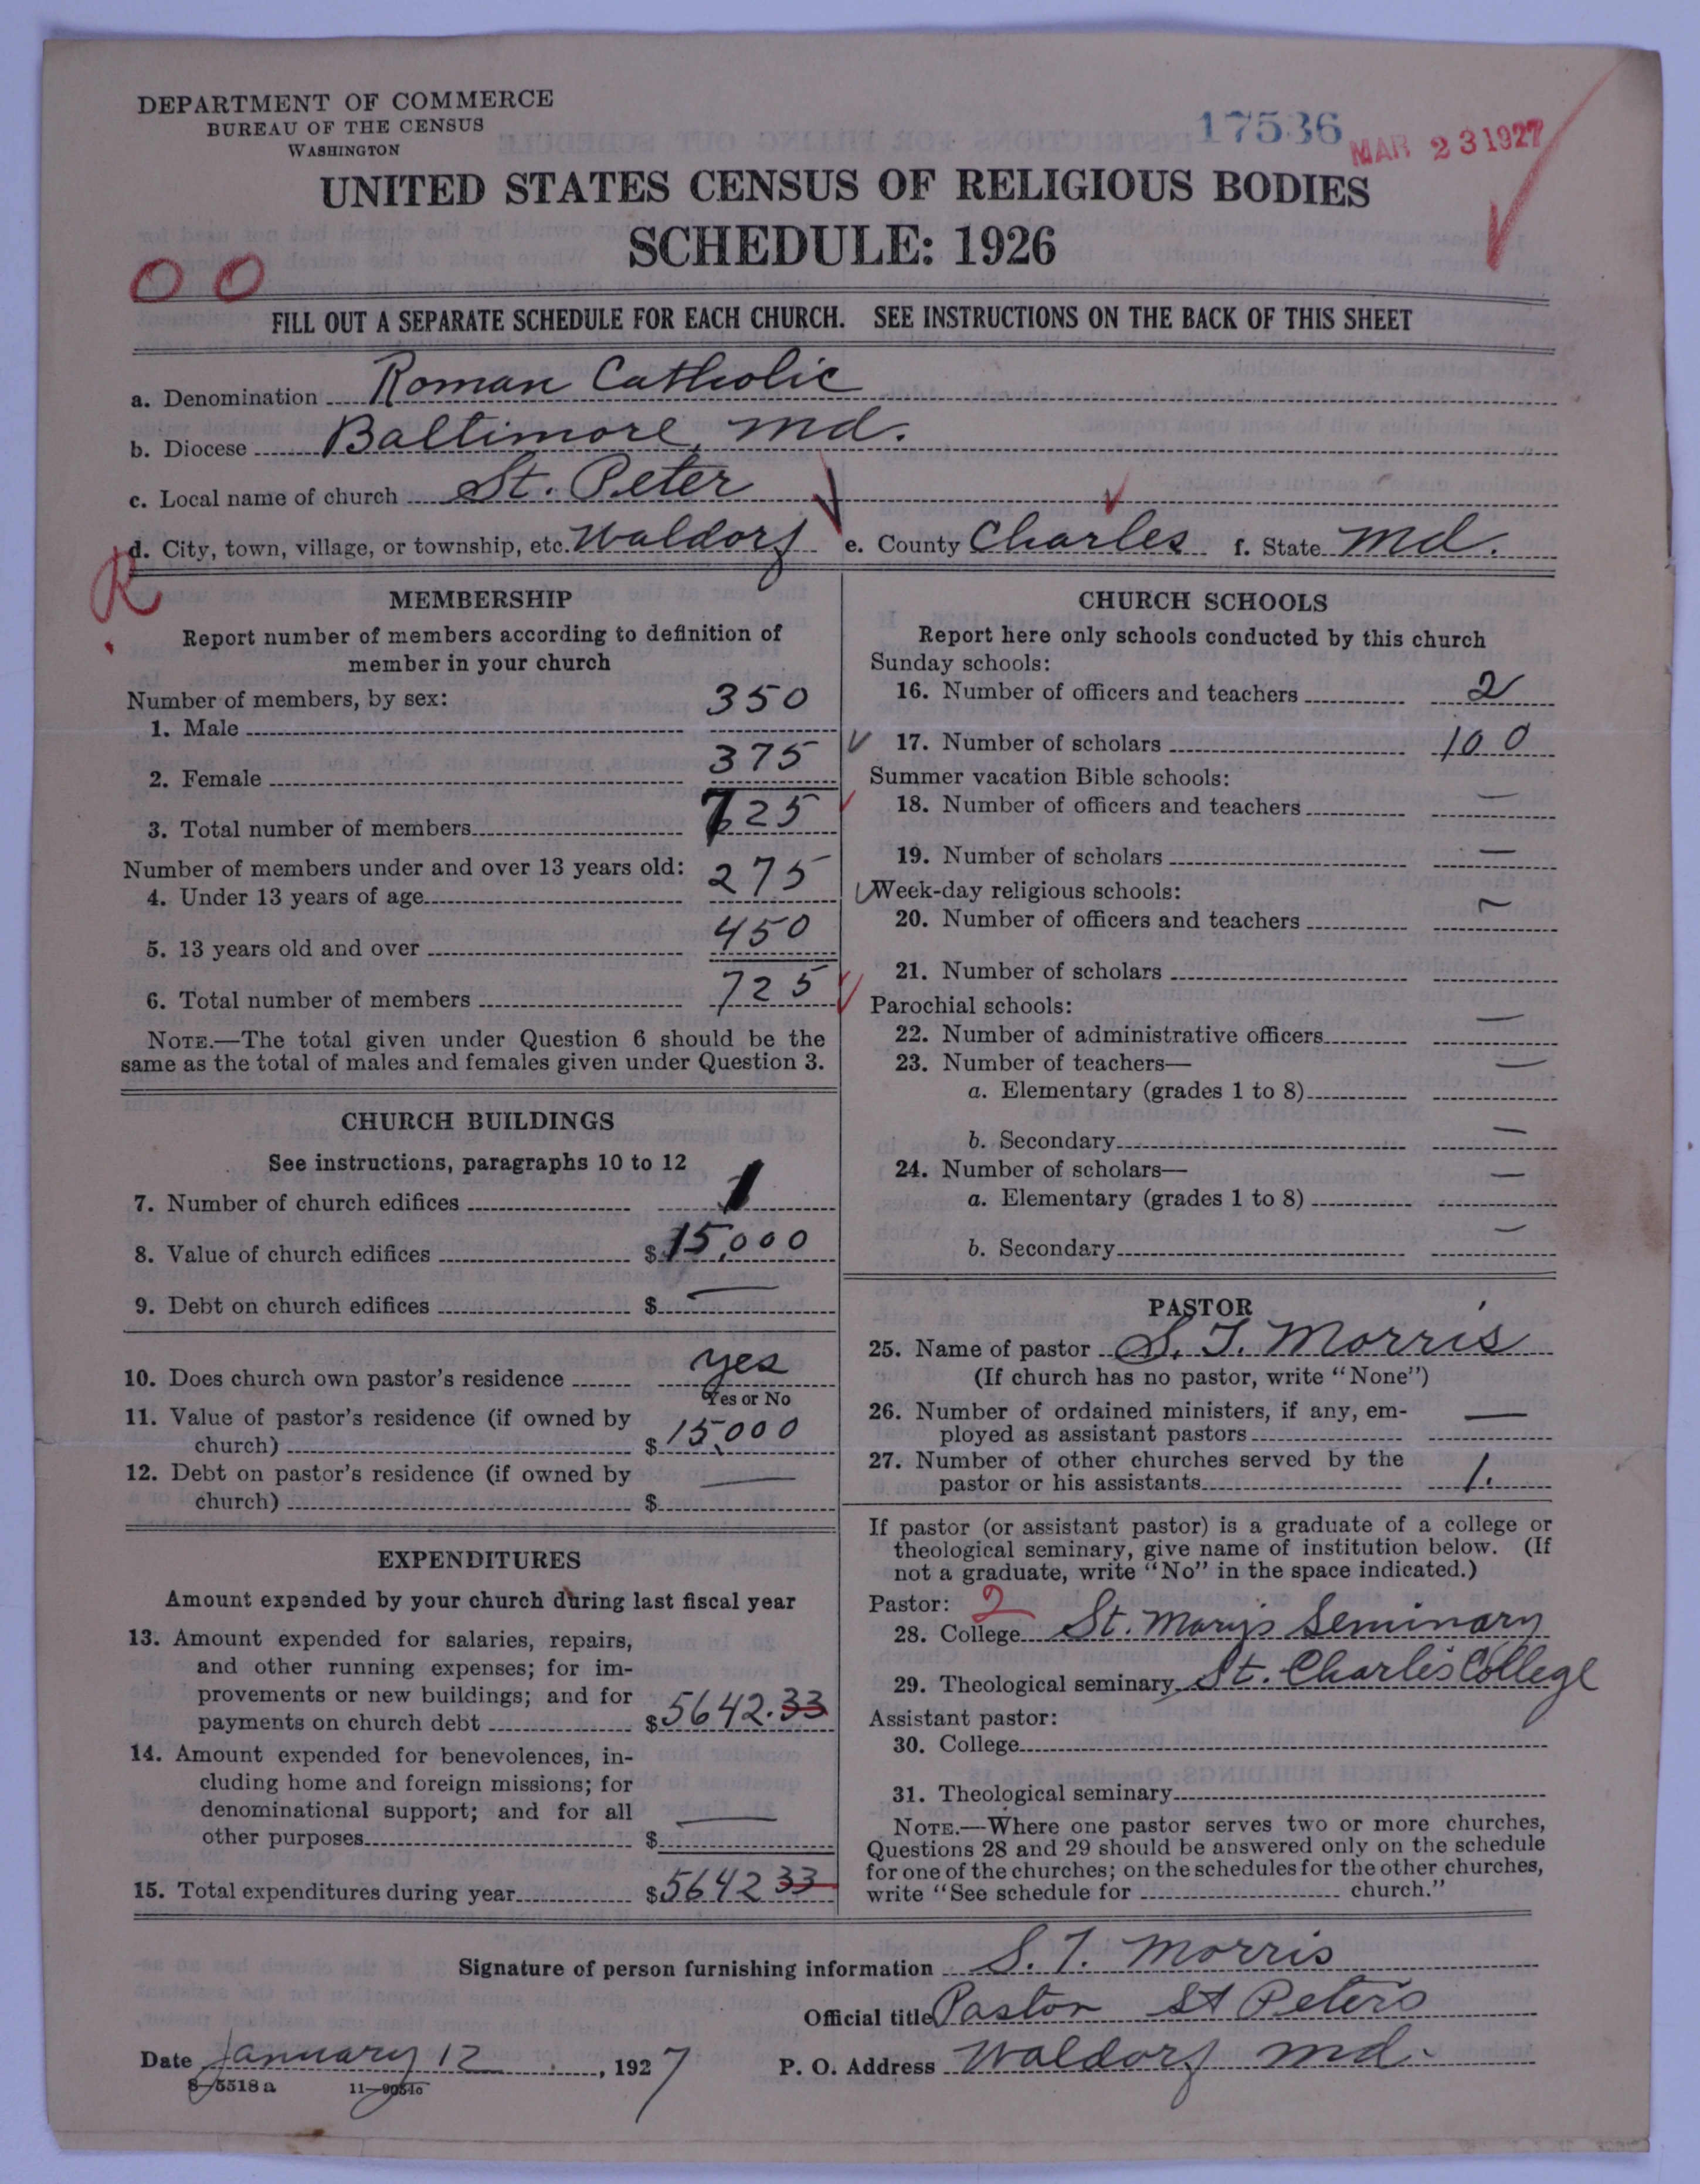 DEPARTMENT OF COMMERCE
BUREAU OF THE CENSUS
WASHINGTON
17536
MAR 23 1927
UNITED STATES CENSUS OF RELIGIOUS BODIES
SCHEDULE: 1926
00
FILL OUT A SEPARATE SCHEDULE FOR EACH CHURCH. SEE INSTRUCTIONS ON THE BACK OF THIS SHEET
a. Denomination Roman Catholic
b. Diocese Baltimore, Md.
c. Local name of church St. Peter
d. City, town, village, or township, etc. Waldorf e. County Charles f. State Md.
R
MEMBERSHIP
Report number of members according to definition of
member in your church
Number of members, by sex:
1. Male 350
2. Female 375
3. Total number of members 725
Number of members under and over 13 years old:
4. Under 13 years of age 275
5. 13 years old and over 450
6. Total number of members 725
NOTE.—The total given under Question 6 should be the
same as the total of males and females given under Question 3.
CHURCH BUILDINGS
See instructions, paragraphs 10 to 12
7. Number of church edifices 1
8. Value of church edifices $15,000
9. Debt on church edifices $ —
10. Does church own pastor's residence yes
Yes or No
11. Value of pastor's residence (if owned by
church) $15,000
12. Debt on pastor's residence (if owned by
church) $ —
EXPENDITURES
Amount expended by your church during last fiscal year
13. Amount expended for salaries, repairs,
and other running expenses; for im-
provements or new buildings; and for
payments on church debt $5642.33
14. Amount expended for benevolences, in-
cluding home and foreign missions; for
denominational support; and for all
other purposes $ —
15. Total expenditures during year $5642 33
CHURCH SCHOOLS
Report here only schools conducted by this church
Sunday schools:
16. Number of officers and teachers 2
17. Number of scholars 100
Summer vacation Bible schools:
18. Number of officers and teachers —
19. Number of scholars —
Week-day religious schools:
20. Number of officers and teachers —
21. Number of scholars
Parochial schools:
22. Number of administrative officers —
23. Number of teachers—
a. Elementary (grades 1 to 8) —
b. Secondary —
24. Number of scholars—
a. Elementary (grades 1 to 8) —
b. Secondary —
PASTOR
25. Name of pastor S. T. Morris
(If church has no pastor, write "None")
26. Number of ordained ministers, if any, em-
ployed as assistant pastors —
27. Number of other churches served by the
pastor or his assistants 1.
If pastor (or assistant pastor) is a graduate of a college or
theological seminary, give name of institution below. (If
not a graduate, write "No" in the space indicated.)
Pastor: 2
28. College St. Mary's Seminary
29. Theological seminary St. Charles College
Assistant pastor:
30. College
31. Theological seminary
NOTE.—Where one pastor serves two or more churches,
Questions 28 and 29 should be answered only on the schedule
for one of the churches; on the schedules for the other churches,
write "See schedule for church."
Signature of person furnishing information S. T. Morris
Official title Pastor St Peters
Date January 12, 1927 P. O. Address Waldorf Md.
8-5518 a 11-9051c